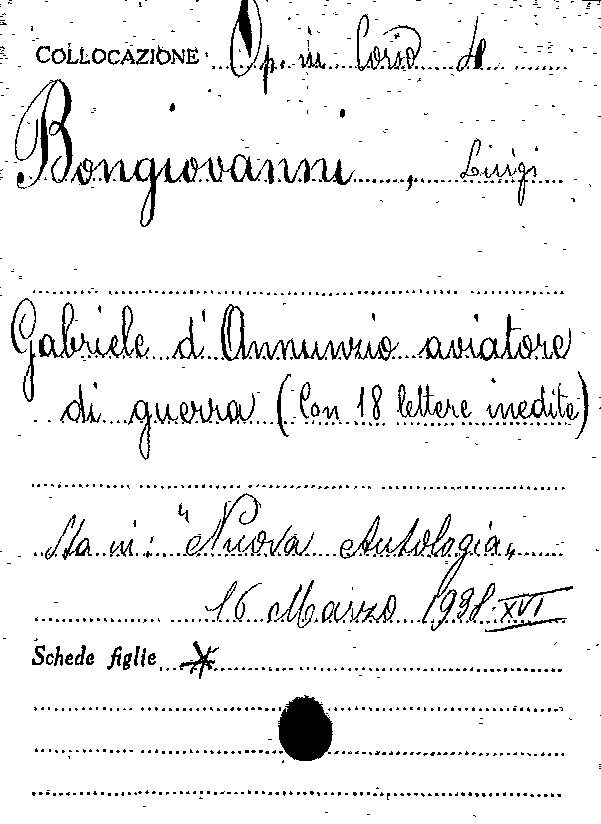 COLLOCAZIONE Op. in Corso 40
Bongiovanni, Luigi
Gabriele d'Annunzio aviatore
di guerra (Con 18 lettere inedite)
Sta in: "Nuova Antologia"
16 Marzo 1938-XVI
Schede figlie